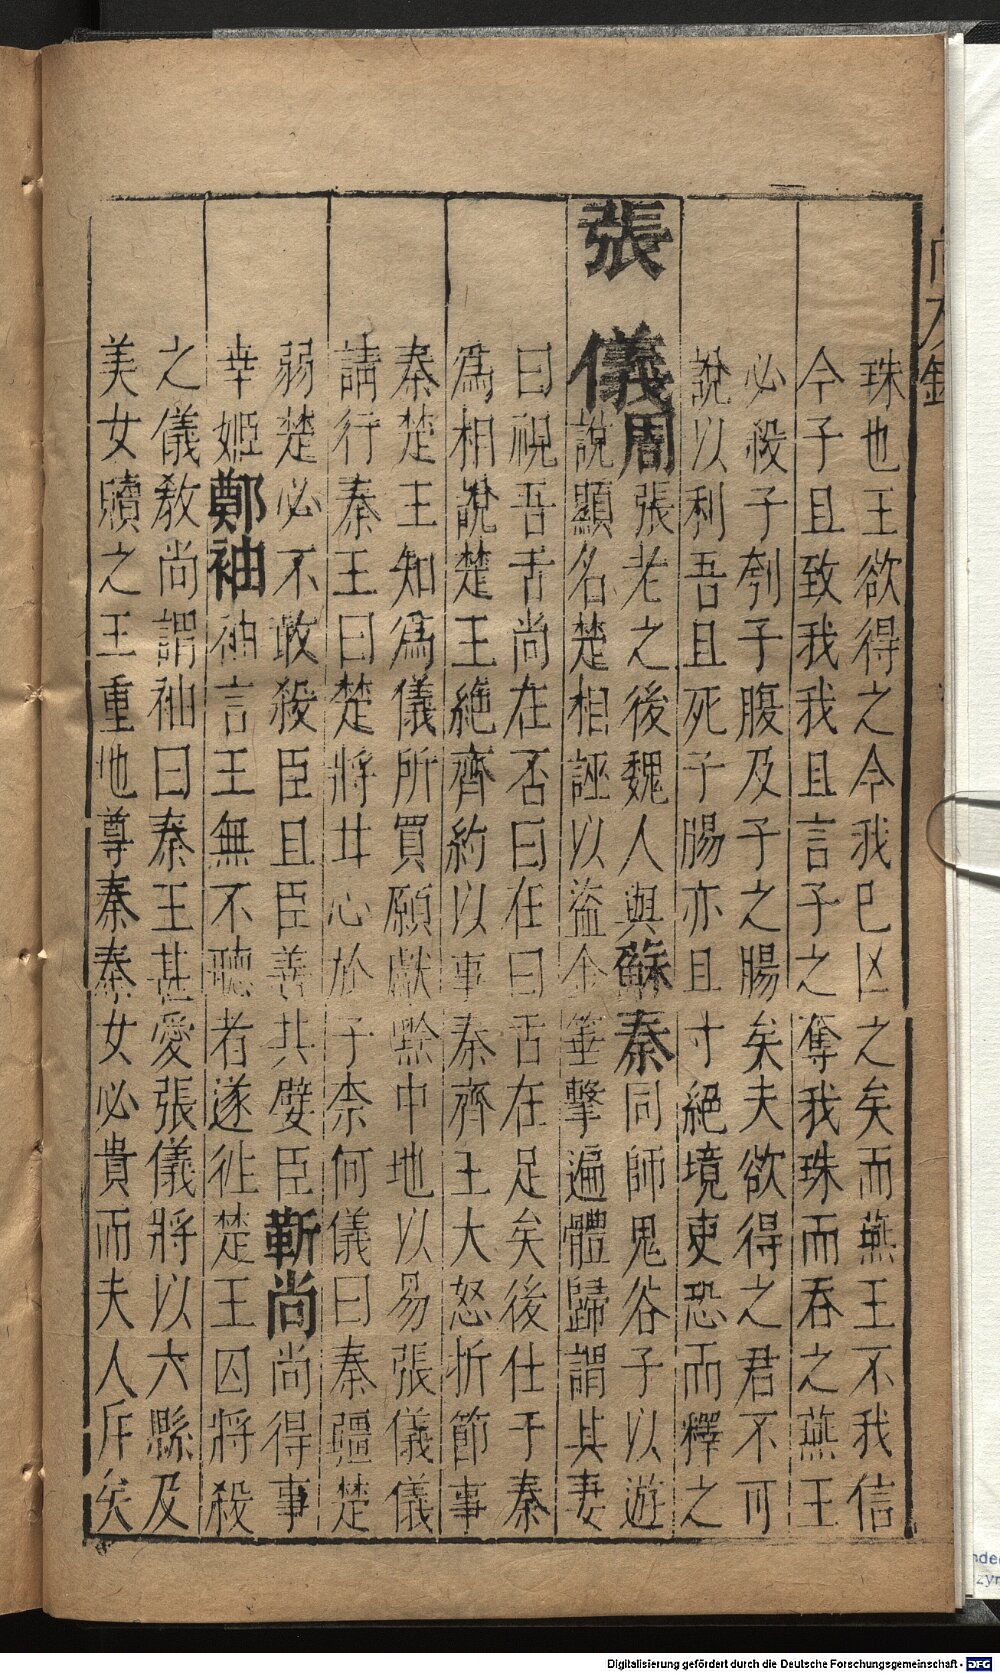 珠也王欲得之今我已亡之矣而燕王不我信
今子且致我我且言子之奪我珠而吞之燕王
必殺子刳子腹及子之腸矣夫欲得之君不可
說以利吾且死子腸亦且寸絕境吏恐而釋之
張儀周張老之後魏人與蘇秦同師鬼谷子以遊
說顯名楚相誣以盜金箠擊遍體歸謂其妻
曰視吾舌尚在否曰在曰舌在足矣後仕于秦
為相說楚王絕齊約以事秦齊王大怒折節事
秦楚王知為儀所買願獻黔中地以易張儀儀
請行秦王曰楚將甘心於子柰何儀曰秦彊楚
弱楚必不敢殺臣且臣善共嬖臣靳尚尚得事
幸姬鄭袖袖言王無不聽者遂徃楚王囚將殺
之儀教尚謂袖曰秦王甚愛張儀將以六縣及
美女贖之王重地尊秦秦女必貴而夫人斥矣
Digitalisierung gefördert durch die Deutsche Forschungsgemeinschaft - DFG